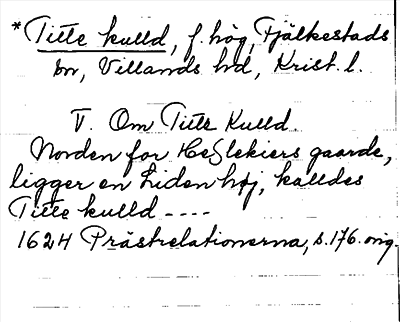 *Titte kulld, f. hög, Fjälkestads
sn, Villands hd, Krist. l.
V. Om Titte Kulld.
Norden for Heslekiers gaarde,
ligger en Liden høj, kalldes
Titte kulld ----
1624 Prästrelationerna, s. 176. orig.